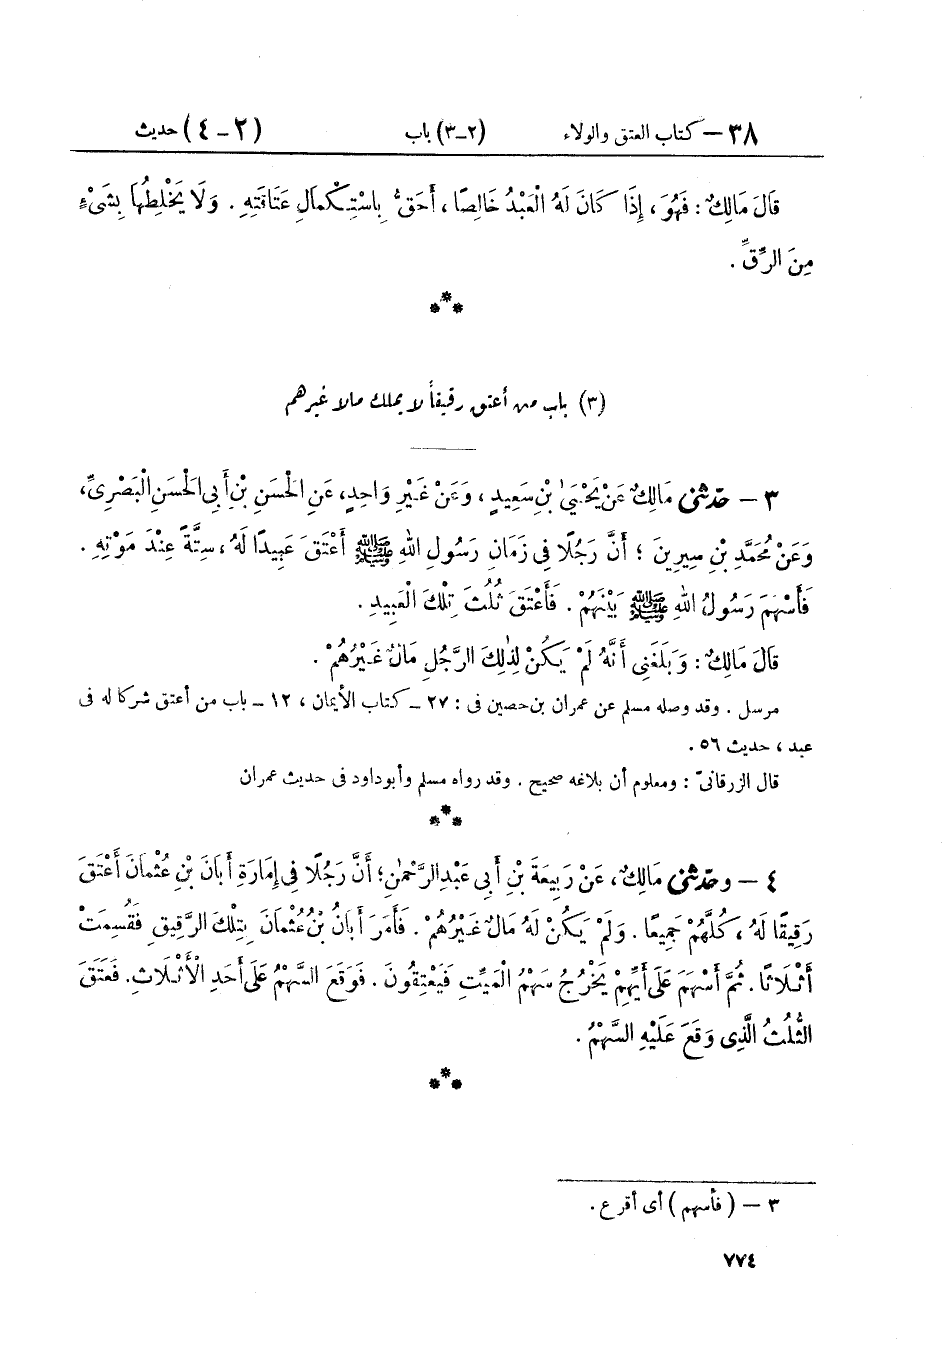 ٣٨ – كتاب العتق والولاء (٢-٣) باب (٢ – ٤) حديث
قَالَ مَالِكٌ : فَهُوَ ، إِذَا كَانَ لَهُ الْعَبْدُ خَالِصًا ، أَحَقُّ بِاسْتِكْمَالِ عَتَاقَتِهِ . وَلَا يَخْلِطُهَا بِشَىْءٍ
مِنَ الرِّقِّ .
(٣) باب من أعتق رقيقاً لا يملك مالا غيرهم
٣ – حدّثنى مَالِكٌ عَنْ يَحْيَىٰ بْنِ سَعِيدٍ ، وَعَنْ غَيْرِ وَاحِدٍ، عَنِ الْحَسَنِ بْنِ أَبِى الْحَسَنِ الْبَصْرِىِّ،
وَعَنْ مُحَمَّدِ بْنِ سِيرِينَ ؛ أَنَّ رَجُلًا فِى زَمَانِ رَسُولِ اللهِ ﷺ أَعْتَقَ عَبِيدًا لَهُ ، سِتَّةً عِنْدَ مَوْتِهِ .
فَأَسْهَمَ رَسُولُ اللهِ ﷺ بَيْنَهُمْ . فَأَعْتَقَ ثُلُثَ تِلْكَ الْعَبِيدِ .
قَالَ مَالِكٌ : وَبَلَغَنِى أَنَّهُ لَمْ يَكُنْ لِذٰلِكَ الرَّجُلِ مَالٌ غَيْرُهُمْ .
مرسل . وقد وصله مسلم عن عمران بن حصين فى : ٢٧ – كتاب الأيمان ، ١٢ – باب من أعتق شركا له فى
عبد ، حديث ٥٦ .
قال الزرقانىّ : ومعلوم أن بلاغه صحيح . وقد رواه مسلم وأبو داود فى حديث عمران
٤ – وحدّثنى مَالِكٌ ، عَنْ رَبِيعَةَ بْنِ أَبِى عَبْدِ الرَّحْمٰنِ؛ أَنَّ رَجُلًا فِى إِمَارَةِ أَبَانَ بْنِ عُثْمَانَ أَعْتَقَ
رَقِيقًا لَهُ ، كُلَّهُمْ جَمِيعًا . وَلَمْ يَكُنْ لَهُ مَالٌ غَيْرُهُمْ . فَأَمَرَ أَبَانُ بْنُ عُثْمَانَ بِتِلْكَ الرَّقِيقِ فَقُسِمَتْ
أَثْلَاثًا . ثُمَّ أَسْهَمَ عَلَى أَيِّهِمْ يَخْرُجُ سَهْمُ الْمَيِّتِ فَيَعْتِقُونَ . فَوَقَعَ السَّهْمُ عَلَى أَحَدِ الْأَثْلَاثِ. فَعَتَقَ
الثُّلُثُ الَّذِى وَقَعَ عَلَيْهِ السَّهْمُ .
٣ – ( فأسهم ) أى أقرع .
٧٧٤